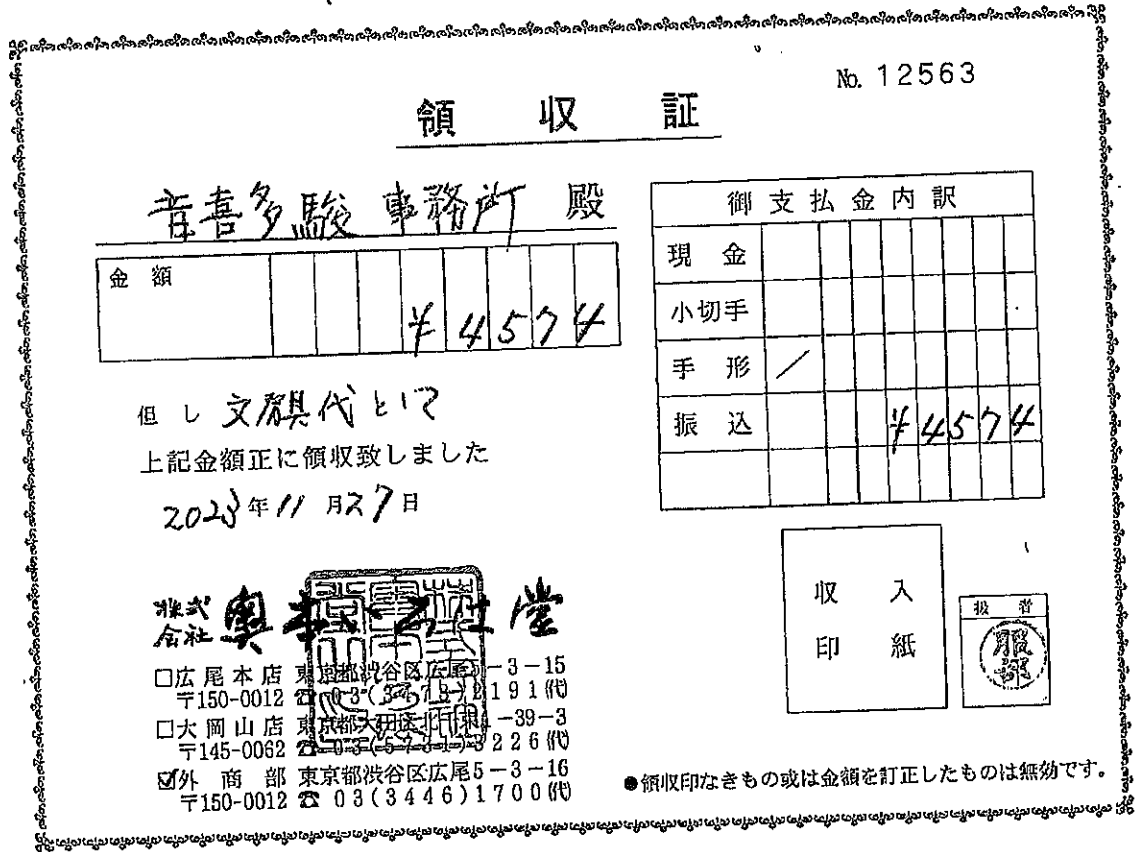 No. 12563
領収証
音喜多駿 事務所 殿
金額 ¥4574
但し 文房具代として
上記金額正に領収致しました
2023年11月27日
御支払金内訳
現金
小切手
手形 /
振込 ¥4574
収入
印紙
扱者
服部
株式
会社
□広尾本店 東京都渋谷区広尾5-3-15
〒150-0012 ☎ 03(3473)2191(代)
□大岡山店 東京都大田区北千束1-39-3
〒145-0062 ☎ 3226(代)
☑外商部 東京都渋谷区広尾5-3-16
〒150-0012 ☎ 03(3446)1700(代)
●領収印なきもの或は金額を訂正したものは無効です。